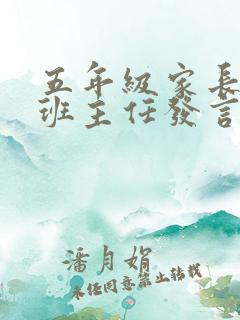 五年級家長
班主任發言
潘月娟
未經同意禁止轉載